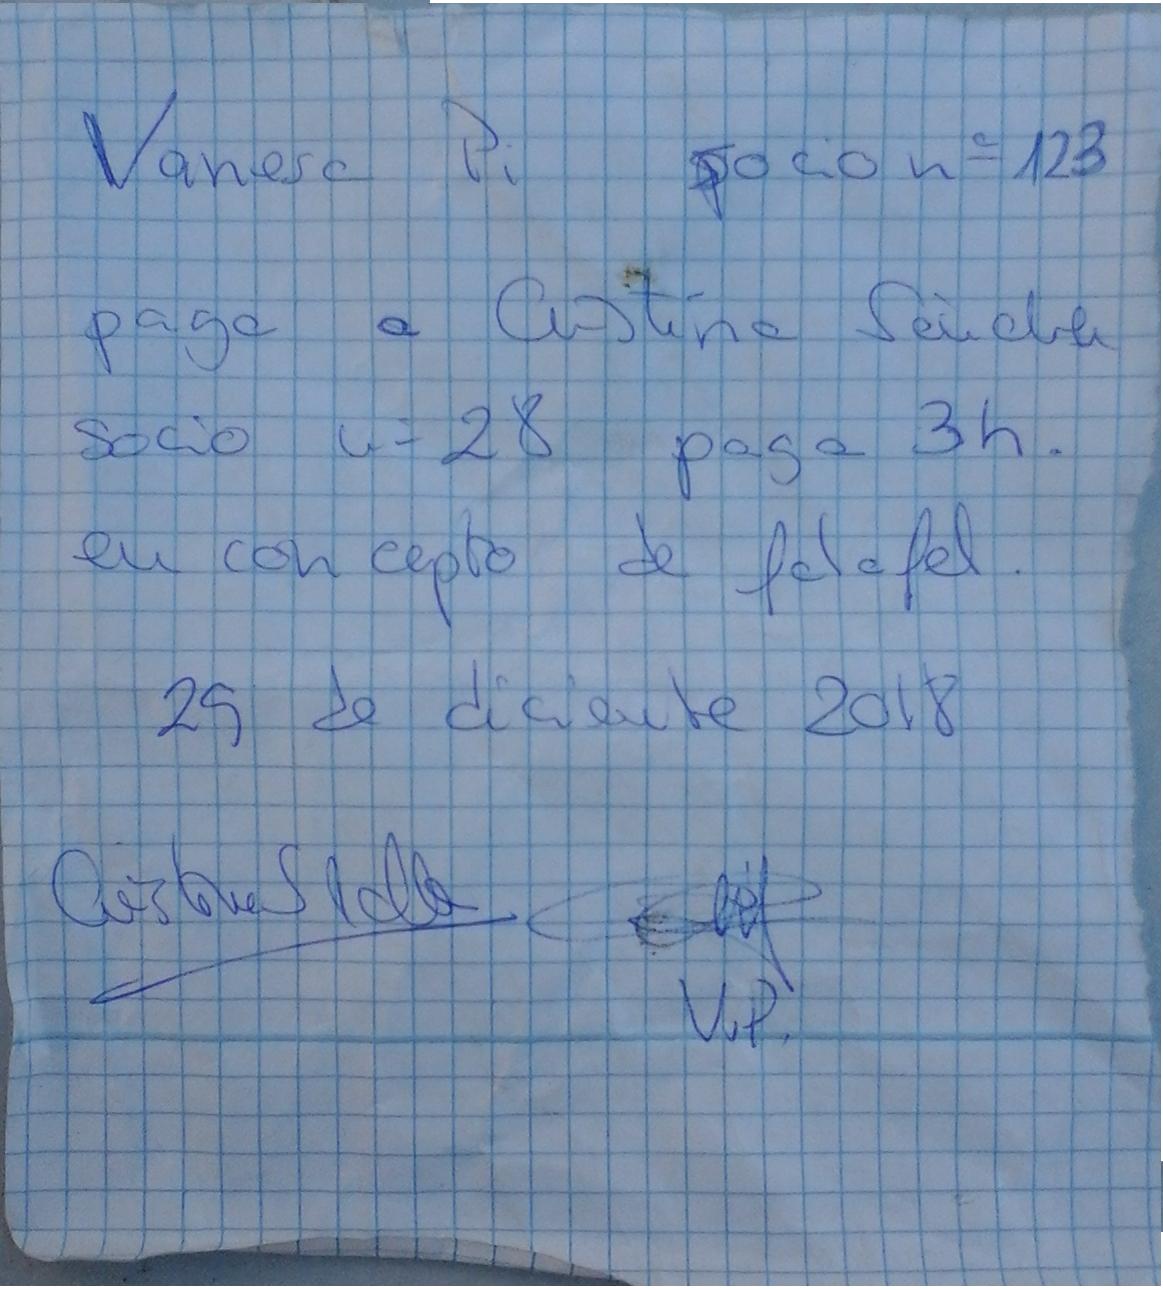 Vanesa Pi socio nº 123
paga a Cristina Sánchez
socio nº 28 paga 3h.
en concepto de falafel.
29 de diciembre 2018
V.P.